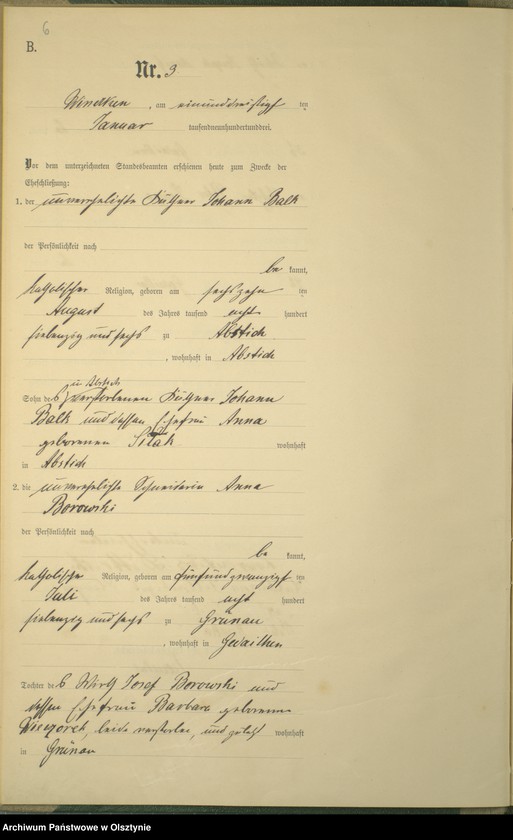 6
B.
Nr. 3
Wendken, am einunddreißigsten
Januar tausendneunhundertunddrei.
Vor dem unterzeichneten Standesbeamten erschienen heute zum Zwecke der
Eheschließung:
1. der unverehelichte Käthner Johann Balk
der Persönlichkeit nach
be kannt,
katholischer Religion, geboren am sechszehn ten
August des Jahres tausend acht hundert
siebenzig und sechs zu Abstich
, wohnhaft in Abstich
zu Abstich
Sohn des verstorbenen Käthner Johann
Balk und dessen Ehefrau Anna
geborenen wohnhaft
in Abstich
2. die unverehelichte Schneiderin Anna
Borowski
der Persönlichkeit nach
be kannt,
katholische Religion, geboren am fünfundzwanzigsten
Juli des Jahres tausend acht hundert
siebenzig und sechs zu Grünau
, wohnhaft in Gedaithen
Tochter des Wirth Josef Borowski und
dessen Ehefrau Barbara geborenen
Wieczorek, beide verstorben, und zuletzt wohnhaft
in Grünau
Archiwum Państwowe w Olsztynie